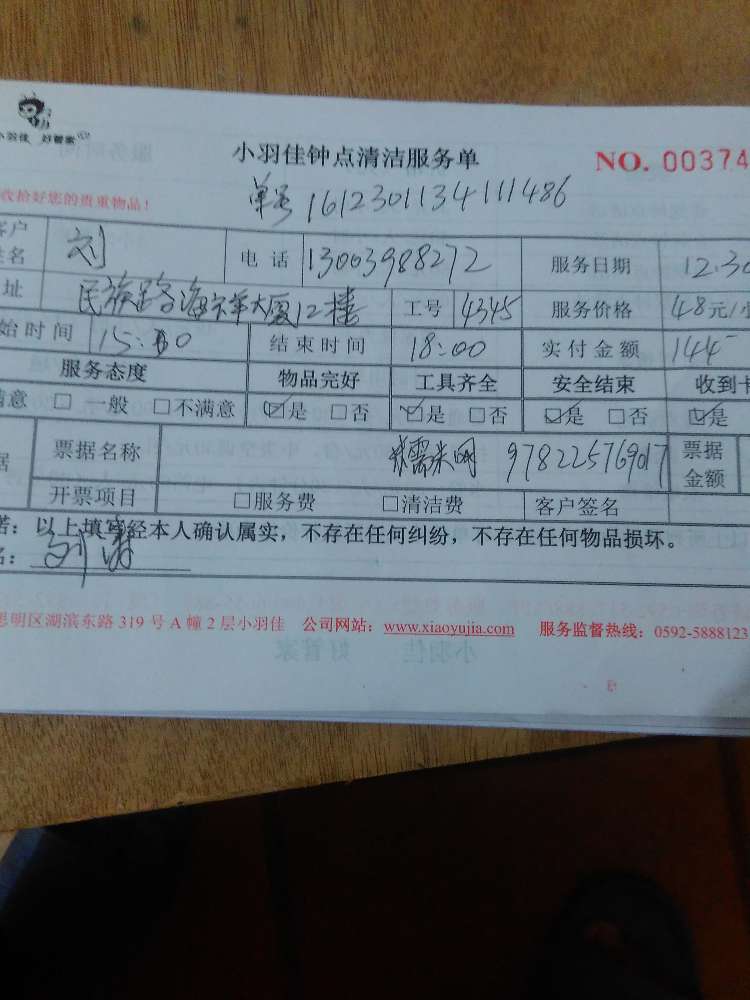 小羽佳 好管家
小羽佳钟点清洁服务单 NO. 00374
收拾好您的贵重物品！ 单号 1612301134111486
客户姓名 刘 电话 13003988272 服务日期 12.30
址 民族路海 大厦12楼 工号 4345 服务价格 48元/小
始时间 15:00 结束时间 18:00 实付金额 144
服务态度 物品完好 工具齐全 安全结束 收到卡
满意 □ 一般 □不满意 ☑是 □否 ☑是 □否 ☑是 □否 ☑是
据 票据名称 糯米网 978225769017 票据金额
开票项目 □服务费 □清洁费 客户签名
诺：以上填写经本人确认属实，不存在任何纠纷，不存在任何物品损坏。
名：刘
思明区湖滨东路 319 号 A 幢 2 层小羽佳 公司网站：www.xiaoyujia.com 服务监督热线：0592-5888123